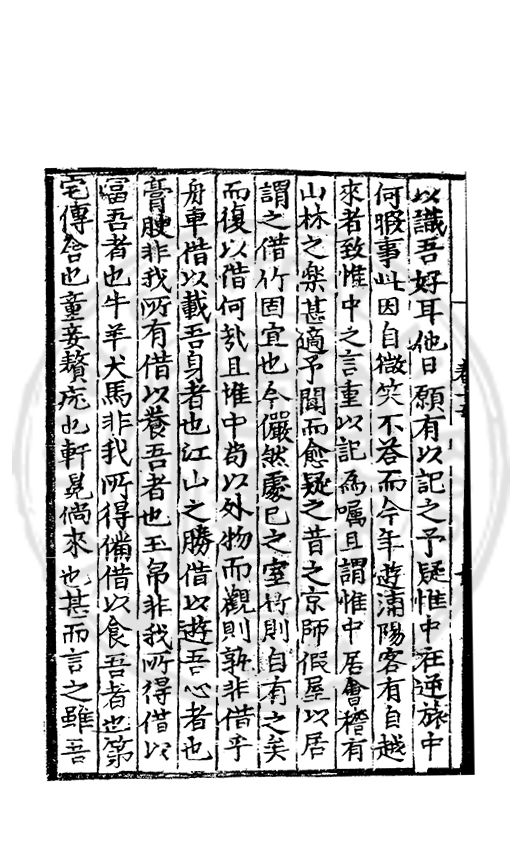 以識吾好耳他日願有以記之予疑惟中在逆旅中
何暇事此因自微笑不荅而今年遊浦陽客有自越
來者致惟中之言重以記為嘱且謂惟中居會稽有
山林之樂甚適予聞而愈疑之昔之京師假屋以居
謂之借竹固宜也今儼然處已之室竹則自有之矣
而復以借何㢤且惟中茍以外物而觀則孰非借乎
舟車借以載吾身者也江山之勝借以遊吾心者也
膏腴非我所有借以養吾者也玉帛非我所得借以
富吾者也牛羊犬馬非我所得備借以食吾者也第
宅傳舍也童妾贅疣也軒冕倘来也甚而言之雖吾